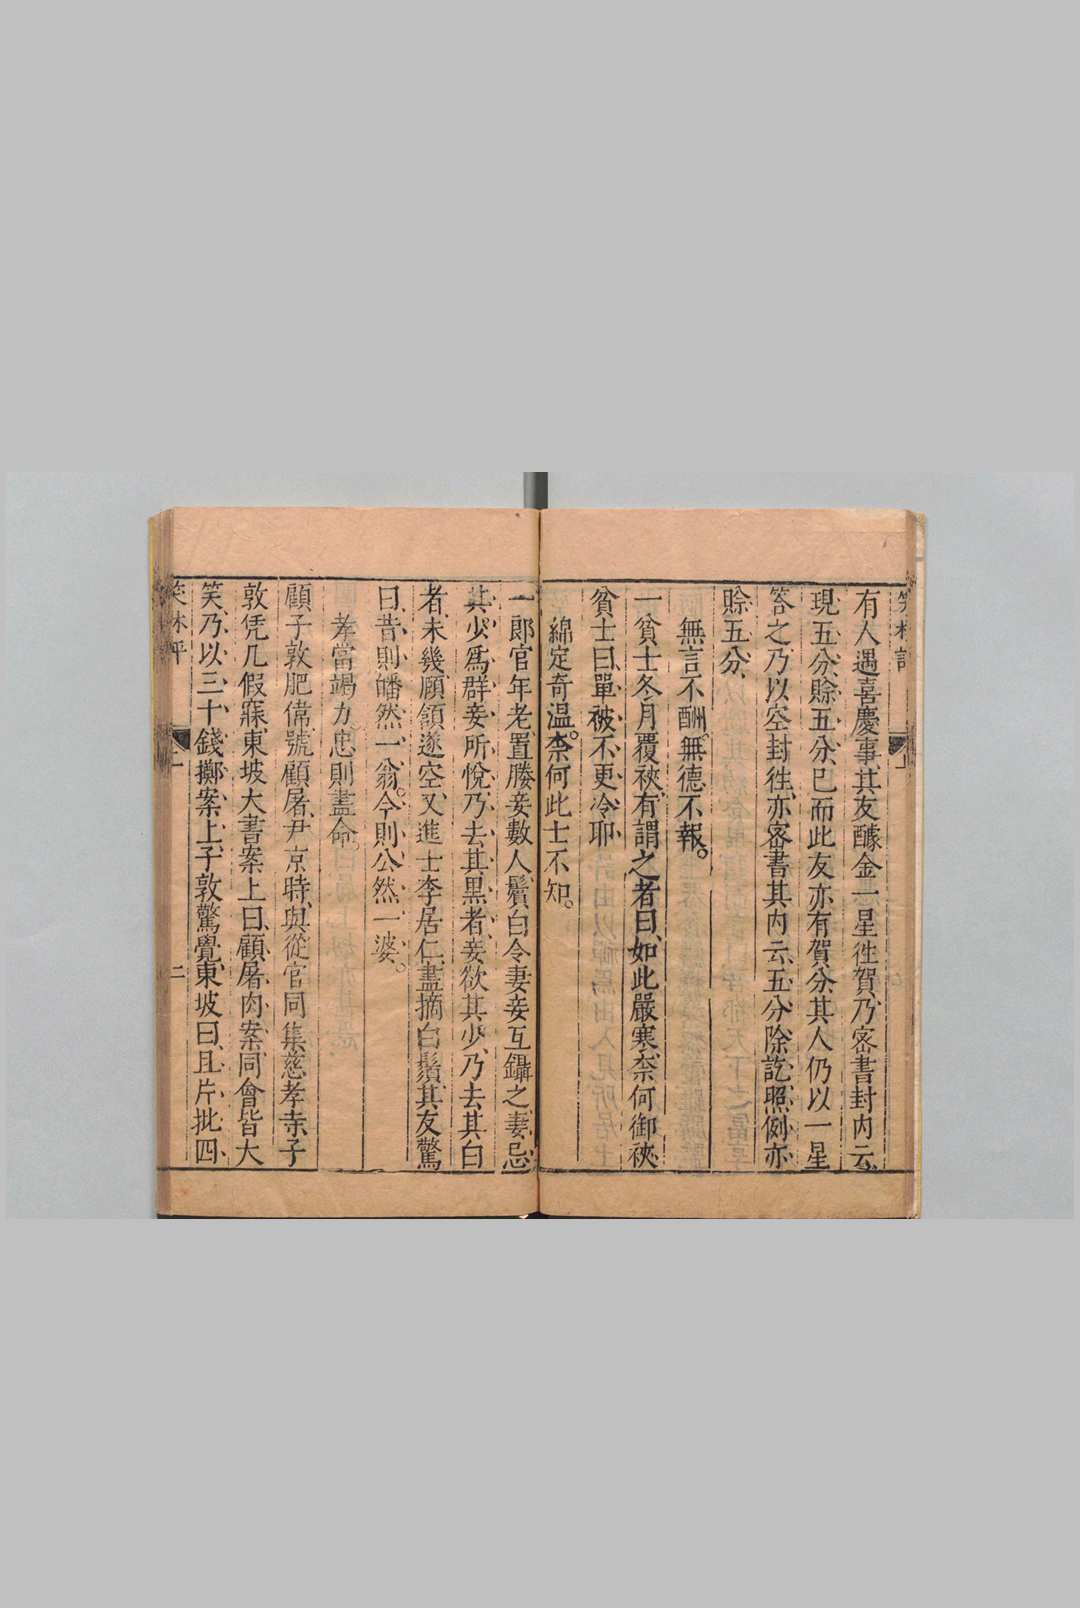 有人遇喜慶事其友醵金一星徃賀乃密書封内云
現五分賖五分巳而此友亦有賀分其人仍以一星
答之乃以空封徃亦密書其内云五分除訖照例亦
賖五分
無言不酬。無德不報。
一貧士冬月覆裌有謂之者曰如此嚴寒柰何御裌
貧士曰單被不更冷耶
綿定奇温。柰何此士不知。
一郎官年老置媵妾數人鬢白令妻妾互鑷之妻忌
其少爲群妾所悅乃去其黒者妾欲其少乃去其白
者未幾頤頷遂空又進士李居仁盡摘白鬚其友驚
曰昔則皤然一翁。今則公然一婆。
孝當竭力。忠則盡命。
顧子敦肥偉號顧屠尹京時與從官同集慈孝寺子
敦凭几假寐東坡大書案上曰顧屠肉案同會皆大
笑乃以三十錢擲案上子敦驚覺東坡曰且片批四
笑林評
二